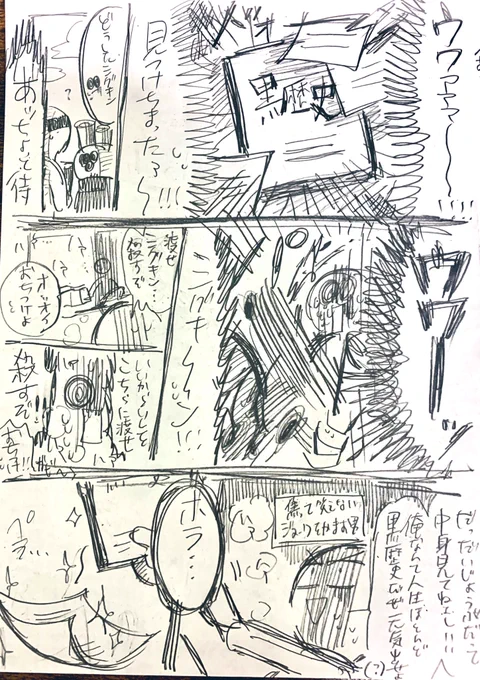 ウワァァァ〜〜〜!!!
黒歴史
見つけちまったァ〜!!!
どうしたニグキン
?
あッちょと待
ウワーーッ
ニグキーーン!!!
渡せ
ニグキン…
殺すぞ
オッオゥ
おちつけよ
いいから
こちらに渡せ
殺すぞ
だっだいじょうぶだって
中身見てねェし!!!
俺なんて人生ほとんど
黒歴史だぜ元気出せよ
(?)
傷て笑えない
ジョークをかます男
ホラ…
ペラ…